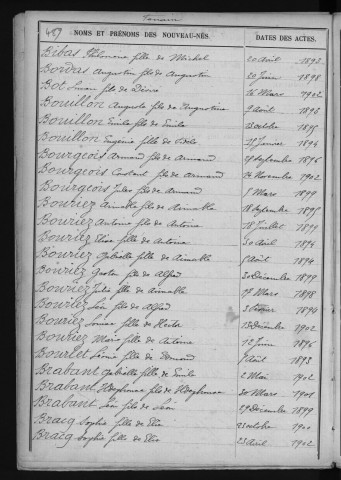 459
NOMS ET PRÉNOMS DES NOUVEAU-NÉS. DATES DES ACTES.
Bibas Philomène fille de Michel 20 Avril 1893
Bordas Augustin fils de Augustin 20 Juin 1898
Bot fils de Pierre 16 Mars 1902
Bouillon Auguste fils de Augustine 9 Avril 1893
Bouillon Emile fils de Emile Octobre 1895
Bouillon Eugénie fille de Janvier 1894
Bourgeois Armand fils de Armand Septembre 1896
Bourgeois Constant fils de Armand Novembre 1902
Bourgeois Jules fils de Armand 5 Mars 1899
Bouriez Aimable fils de Aimable 18 Septembre 1895
Bouriez Antoine fils de Antoine 18 Juillet 1899
Bouriez Elise fille de Antoine 30 Avril 1894
Bouriez Gabrielle fille de Aimable Août 1894
Bouriez Gaston fils de Alfred 30 Décembre 1899
Bouriez Julia fille de Aimable 17 Mars 1898
Bouriez Léon fils de Alfred Février 1894
Bouriez fils de Hector 13 Décembre 1902
Bouriez Maria fille de Antoine 12 Juin 1896
Bourlet fils de Edmond Août 1893
Brabant Gabrielle fille de Emile 2 Mai 1902
Brabant fils de 30 Mars 1901
Brabant Léon fils de Léon 29 Décembre 1899
Bracq Sophie fille de Elie Octobre 1900
Bracq Sophie fille de Elie 23 Avril 1902